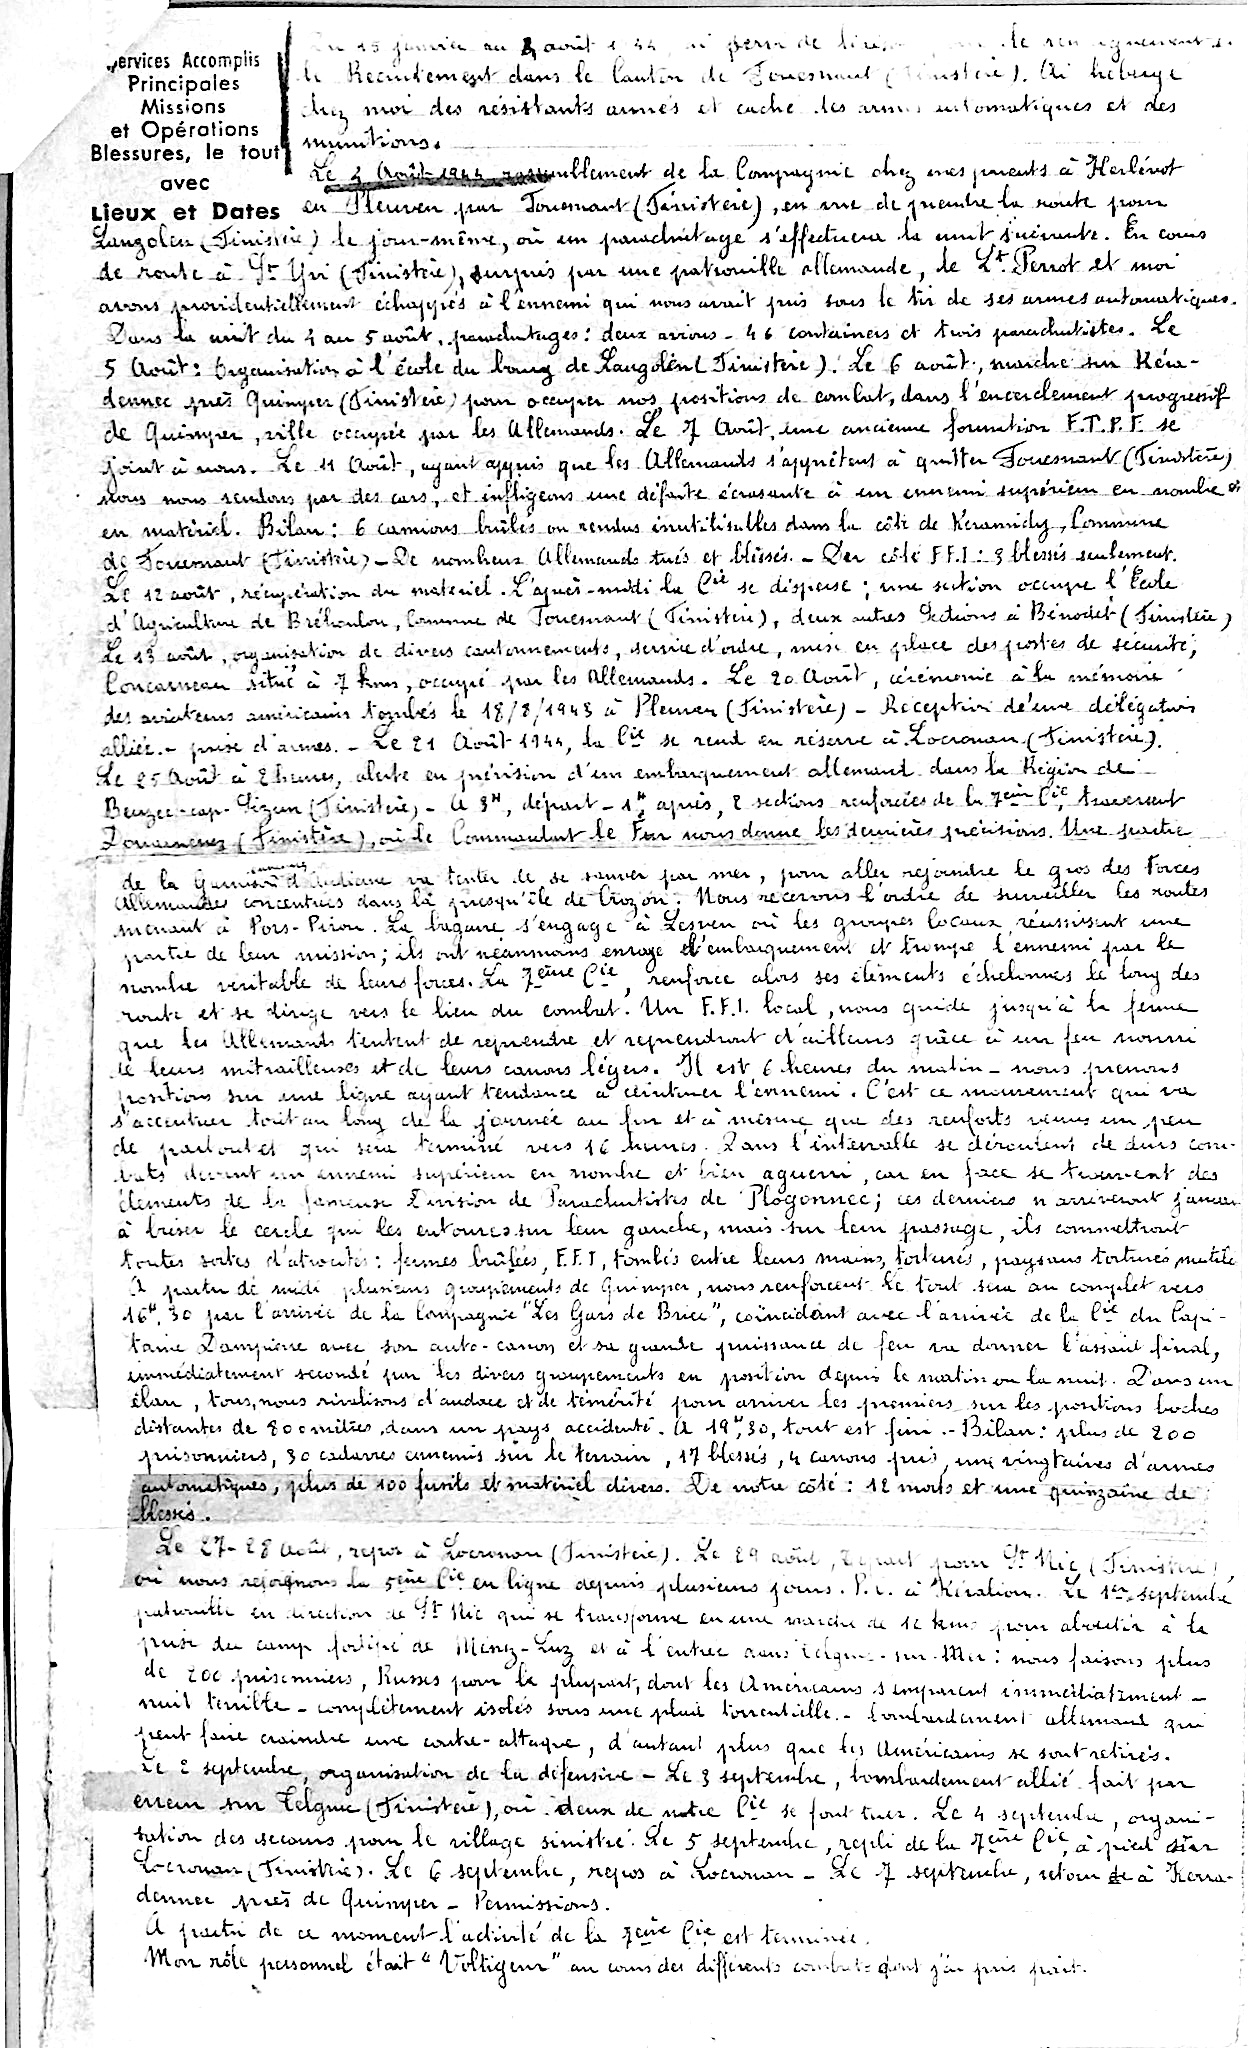 Services Accomplis
Principales
Missions
et Opérations
Blessures, le tout
avec
Lieux et Dates
15 janvier au 4 août 1944
le Recrutement dans le Canton de Fouesnant (Finistère). Ai hébergé
chez moi des résistants armés et caché des armes automatiques et des
munitions.
Le 4 Août 1944 rassemblement de la Compagnie chez mes parents à
en Pleuven par Fouesnant (Finistère), en vue de prendre la route pour
Langolen (Finistère) le jour-même, où un parachutage s'effectuera la nuit suivante. En cours
de route à St Yvi (Finistère), surpris par une patrouille allemande, le Lt. Perrot et moi
avons providentiellement échappés à l'ennemi qui nous avait pris sous le tir de ses armes automatiques.
Dans la nuit du 4 au 5 août, parachutages : deux avions - 46 containers et trois parachutistes. Le
5 Août : Organisation à l'école du bourg de Langolen (Finistère). Le 6 août, marche sur Kéra-
dennec près Quimper (Finistère) pour occuper nos positions de combat, dans l'encerclement progressif
de Quimper, ville occupée par les Allemands. Le 7 Août, une ancienne formation F.T.P.F. se
joint à nous. Le 11 Août, ayant appris que les Allemands s'apprêtent à quitter Fouesnant (Finistère)
nous nous rendons par des cars, et infligeons une défaite écrasante à un ennemi supérieur en nombre et
en matériel. Bilan : 6 camions brûlés ou rendus inutilisables dans la côte de Keramidy, Commune
de Fouesnant (Finistère) - De nombreux Allemands tués et blessés. - Du côté F.F.I : 3 blessés seulement.
Le 12 août, récupération du matériel. L'après-midi la Cie se disperse ; une section occupe l'Ecole
d'Agriculture de Bréhoulou, Commune de Fouesnant (Finistère), deux autres Sections à Bénodet (Finistère)
Le 13 août, organisation de divers cantonnements, service d'ordre, mise en place des postes de sécurité,
Concarneau situé à 7 kms, occupé par les Allemands. Le 20 Août, cérémonie à la mémoire
des aviateurs américains tombés le 18/8/1943 à Pleuven (Finistère) - Réception d'une délégation
alliée. - prise d'armes. - Le 21 Août 1944, la Cie se rend en réserve à Locronan (Finistère).
Le 25 Août à 2 heures, alerte en prévision d'un embarquement allemand dans la Région de
Beuzec-cap-Sizun (Finistère) - A 3H, départ - 1H après, 2 sections renforcées de la 7ème Cie, traversent
Douarnenez (Finistère), où le Commandant le Fur nous donne les dernières précisions. Une partie
de la Garnison d'Audierne va tenter de se sauver par mer, pour aller rejoindre le gros des Forces
Allemandes concentrées dans la presqu'île de Crozon. Nous recevons l'ordre de surveiller les routes
menant à Pors-Piron. La bagarre s'engage à Lesven où les groupes locaux réussissent une
partie de leur mission ; ils ont néanmoins enrayé l'embarquement et trompé l'ennemi par le
nombre véritable de leurs forces. La 7ème Cie, renforce alors ses éléments échelonnés le long des
route et se dirige vers le lieu du combat. Un F.F.I. local, nous guide jusqu'à la ferme
que les Allemands tentent de reprendre et reprendront d'ailleurs grâce à un feu nourri
de leurs mitrailleuses et de leurs canons légers. Il est 6 heures du matin - nous prenons
positions sur une ligne ayant tendance à ceinturer l'ennemi. C'est ce mouvement qui va
s'accentuer tout au long de la journée au fur et à mesure que des renforts venus un peu
de partout et qui sera terminé vers 16 heures. Dans l'intervalle se déroulent de durs com-
bats devant un ennemi supérieur en nombre et bien aguerri, car en face se trouvent des
éléments de la fameuse Division de Parachutistes de Plogonnec ; ces derniers n'arriveront jamais
à briser le cercle qui les entoures sur leur gauche, mais sur leur passage, ils commettront
toutes sortes d'atrocités : fermes brûlées, F.F.I, tombés entre leurs mains, torturés, paysans torturés, mutilé
A partir de midi plusieurs groupements de Quimper, nous renforcent. Le tout sera au complet vers
16H,30 par l'arrivée de la Compagnie "Les Gars de Briec", coïncidant avec l'arrivée de la Cie du Capi-
taine Dampierre avec son auto-canon et sa grande puissance de feu va donner l'assaut final,
immédiatement secondé par les divers groupements en position depuis le matin ou la nuit. Dans un
élan, tous, nous rivalisons d'audace et de témérité pour arriver les premiers sur les positions boches
distantes de 800 mètres, dans un pays accidenté. A 19H,30, tout est fini. - Bilan : plus de 200
prisonniers, 30 cadavres ennemis sur le terrain, 17 blessés, 4 canons pris, une vingtaines d'armes
automatiques, plus de 100 fusils et matériel divers. De notre côté : 12 morts et une quinzaine de
blessés.
Le 27-28 Août, repos à Locronan (Finistère). Le 29 août, départ pour St Nic (Finistère),
où nous rejoignons la 5ème Cie en ligne depuis plusieurs jours. P.C. à Kéralion. Le 1er septembre
patrouille en direction de St Nic qui se transforme en une marche de 12 kms pour aboutir à la
prise du camp fortifié de Ménez-Luz et à l'entrée dans Telgruc-sur-Mer : nous faisons plus
de 200 prisonniers, Russes pour la plupart, dont les Américains s'emparent immédiatement -
nuit terrible - complètement isolés sous une pluie torrentielle. - bombardement allemand qui
peut faire craindre une contre-attaque, d'autant plus que les Américains se sont retirés.
Le 2 septembre, organisation de la défensive - Le 3 septembre, bombardement allié fait par
erreur sur Telgruc (Finistère), où deux de notre Cie se font tuer. Le 4 septembre, organi-
sation des secours pour le village sinistré. Le 5 septembre, repli de la 7ème Cie, à pied sur
Locronan (Finistère). Le 6 septembre, repos à Locronan - Le 7 septembre, retour à Kerra-
dennec près de Quimper - Permissions.
A partir de ce moment l'activité de la 7ème Cie est terminée.
Mon rôle personnel était "Voltigeur" au cours des différents combats dont j'ai pris part.